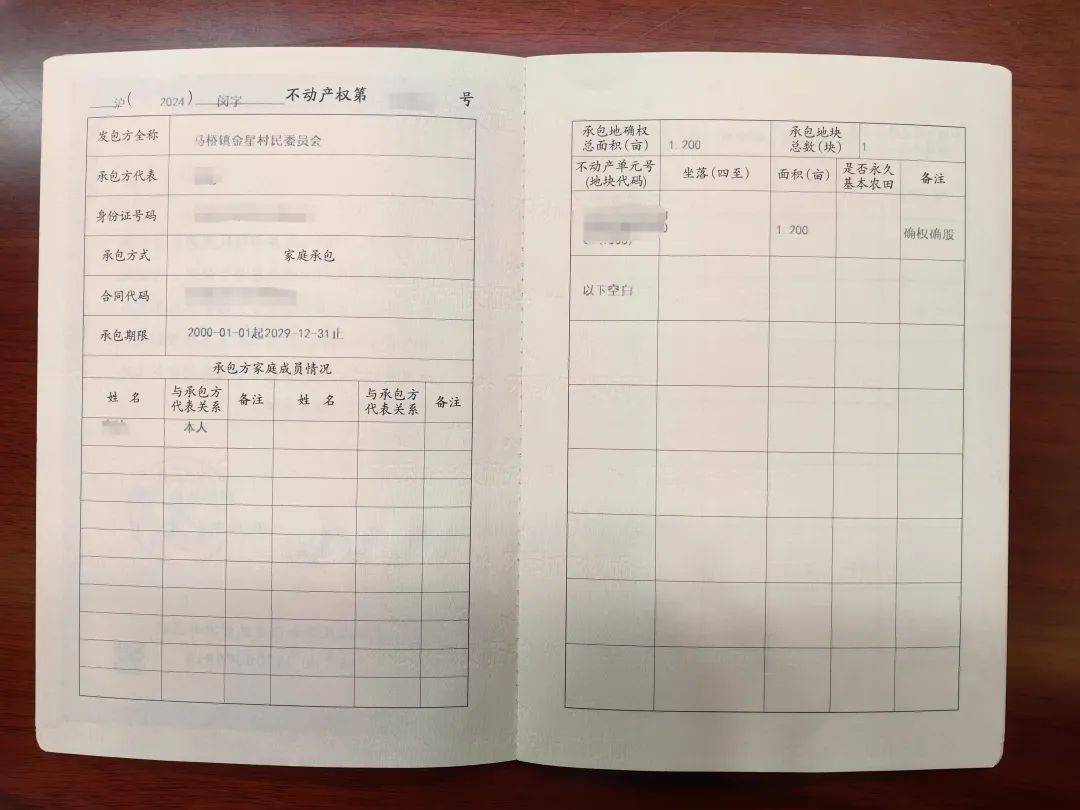 沪( 2024 ) 闵字 不动产权第 号
发包方全称 马桥镇金星村民委员会
承包方代表
身份证号码
承包方式 家庭承包
合同代码
承包期限 2000-01-01起2029-12-31止
承包方家庭成员情况
姓 名 与承包方代表关系 备注 姓 名 与承包方代表关系 备注
本人
承包地确权总面积(亩) 1.200 承包地块总数(块) 1
不动产单元号(地块代码) 坐落(四至) 面积(亩) 是否永久基本农田 备注
1.200 确权确股
以下空白